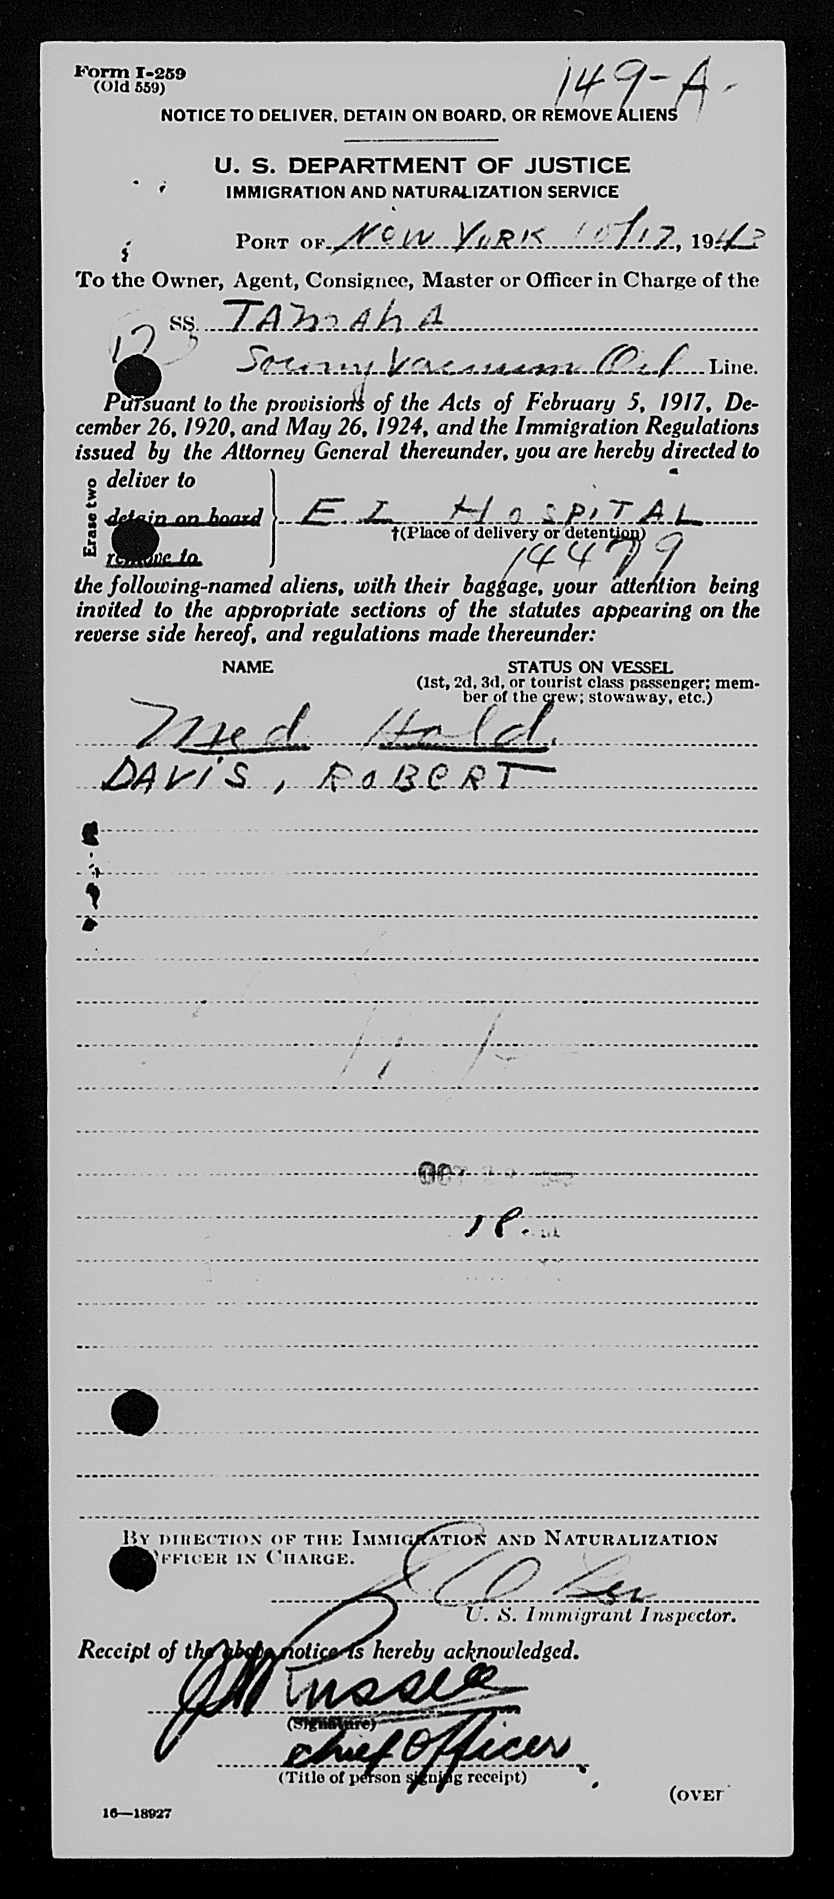 Form I-259
(Old 559)
149-A.
NOTICE TO DELIVER, DETAIN ON BOARD, OR REMOVE ALIENS
U. S. DEPARTMENT OF JUSTICE
IMMIGRATION AND NATURALIZATION SERVICE
PORT OF NEW YORK 10/17, 1943
To the Owner, Agent, Consignee, Master or Officer in Charge of the
SS. TAMAHA
Socony Vacuum Oil Line.
Pursuant to the provisions of the Acts of February 5, 1917, De-
cember 26, 1920, and May 26, 1924, and the Immigration Regulations
issued by the Attorney General thereunder, you are hereby directed to
Erase two
deliver to
detain on board
remove to
E I HOSPITAL
†(Place of delivery or detention)
14479
the following-named aliens, with their baggage, your attention being
invited to the appropriate sections of the statutes appearing on the
reverse side hereof, and regulations made thereunder:
NAME STATUS ON VESSEL
(1st, 2d, 3d, or tourist class passenger; mem-
ber of the crew; stowaway, etc.)
Med Hold.
DAVIS, ROBERT
OCT
BY DIRECTION OF THE IMMIGRATION AND NATURALIZATION
OFFICER IN CHARGE.
U. S. Immigrant Inspector.
Receipt of the above notice is hereby acknowledged.
Russell
(Signature)
chief Officer.
(Title of person signing receipt)
(OVER
16—18927